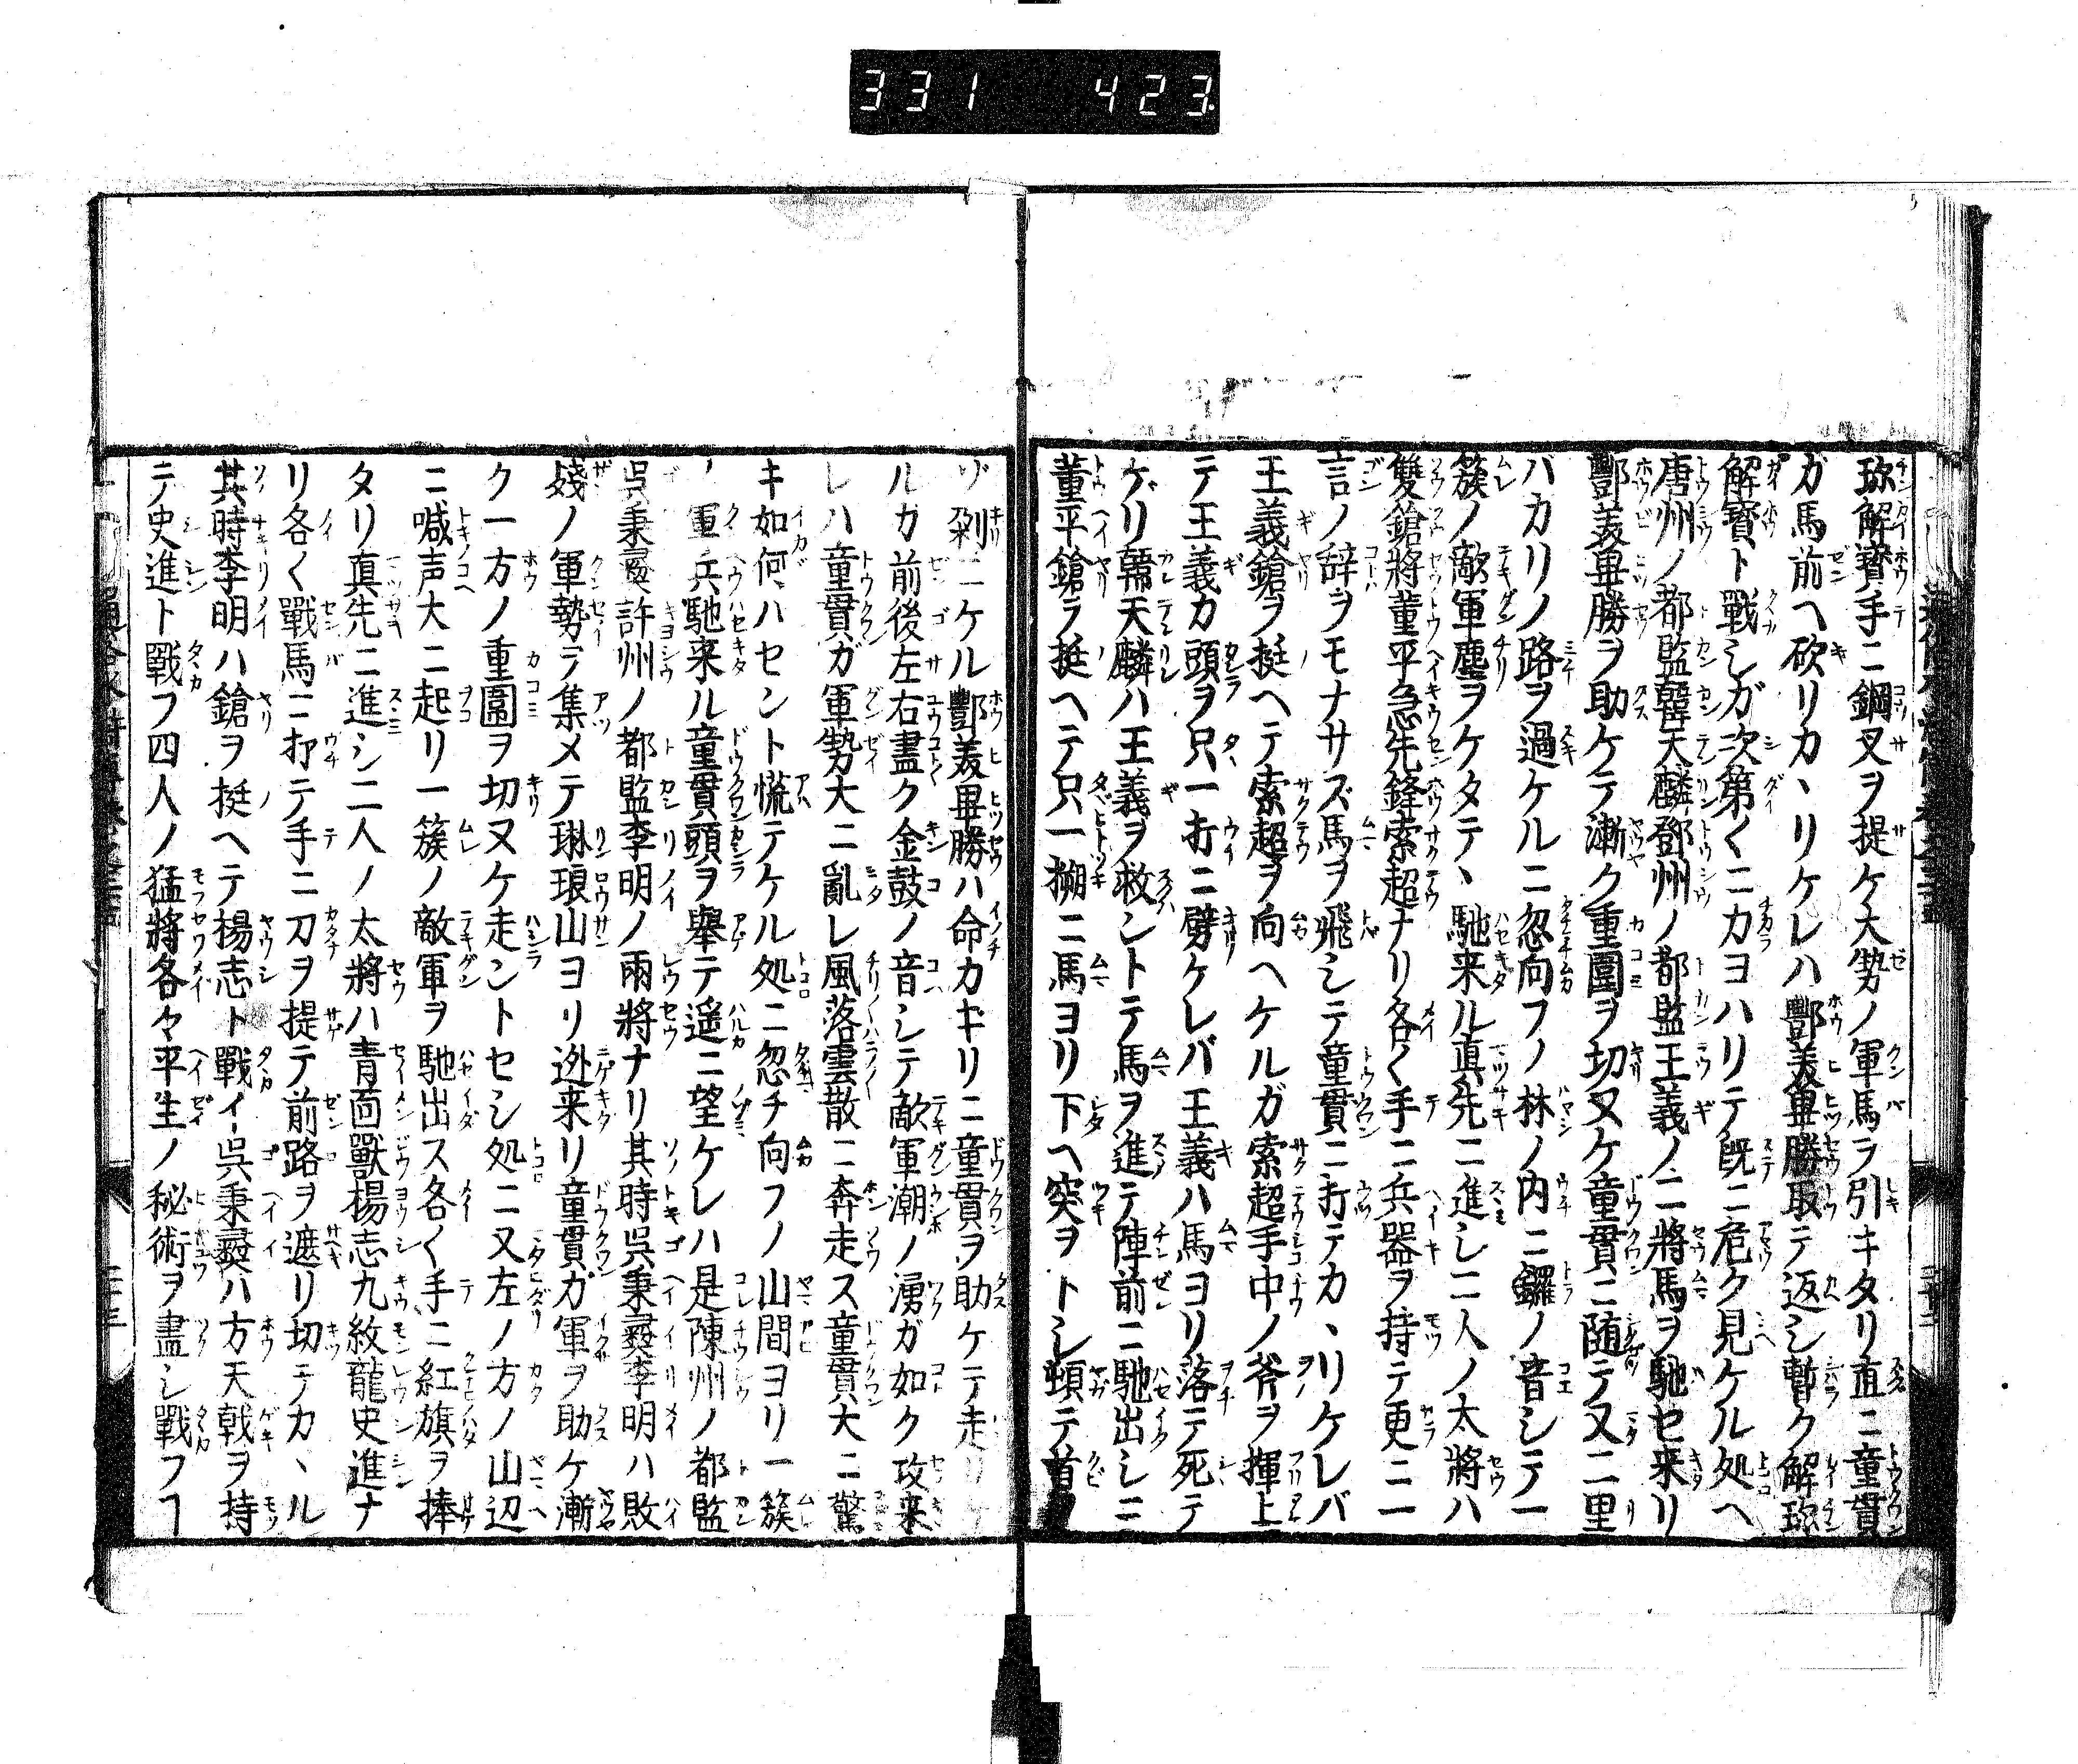 331 423
珎解寶手ニ鋼叉ヲ提ケ大勢ノ軍馬ヲ引キタリ直ニ童貫
ガ馬前ヘ砍リカヽリケレハ酆美畢勝取テ返シ暫ク解珎
解寶ト戰シガ次第〱ニカヨハリテ既ニ危ク見ケル処ヘ
唐州ノ都監韓天麟鄧州ノ都監王義ノ二將馬ヲ馳セ来リ
酆美畢勝ヲ助ケテ漸ク重圍ヲ切叉ケ童貫ニ随テ又二里
バカリノ路ヲ過ケルニ忽向フノ林ノ内ニ鑼ノ音シテ一
簇ノ敵軍塵ヲケタテヽ馳来ル真先ニ進シ二人ノ太將ハ
雙鎗將董平急先鋒索超ナリ各〱手ニ兵器ヲ持テ更ニ一
言ノ辞ヲモナサズ馬ヲ飛シテ童貫ニ打テカヽリケレバ
王義鎗ヲ挺ヘテ索超ヲ向ヘケルガ索超手中ノ斧ヲ揮上
テ王義カ頭ヲ只一打ニ劈ケレバ王義ハ馬ヨリ落テ死テ
ゲリ韓天麟ハ王義ヲ救ントテ馬ヲ進テ陣前ニ馳出シニ
董平鎗ヲ挺ヘテ只一搠ニ馬ヨリ下ヘ突ヲトシ頓テ首ヲ
ゾ剁ニケル酆美畢勝ハ命カギリニ童貫ヲ助ケテ走リ
ルカ前後左右盡ク金鼓ノ音シテ敵軍潮ノ湧ガ如ク攻来
レハ童貫ガ軍勢大ニ亂レ風落雲散ニ奔走ス童貫大ニ驚
キ如何ハセント慌テケル処ニ忽チ向フノ山間ヨリ一簇
ノ軍兵馳来ル童貫頭ヲ擧テ遥ニ望ケレハ是陳州ノ都監
呉秉彝許州ノ都監李明ノ兩將ナリ其時呉秉彝李明ハ敗
殘ノ軍勢ヲ集メテ琳琅山ヨリ迯来リ童貫ガ軍ヲ助ケ漸
ク一方ノ重圍ヲ切叉ケ走ントセシ処ニ又左ノ方ノ山辺
ニ喊声大ニ起リ一簇ノ敵軍ヲ馳出ス各〱手ニ紅旗ヲ捧
タリ真先ニ進シ二人ノ太將ハ青面獸楊志九紋龍史進ナ
リ各〱戰馬ニ打テ手ニ刀ヲ提テ前路ヲ遮リ切テカヽル
其時李明ハ鎗ヲ挺ヘテ楊志ト戰イ呉秉彝ハ方天戟ヲ持
テ史進ト戰フ四人ノ猛將各々平生ノ秘術ヲ盡シ戰フヿ